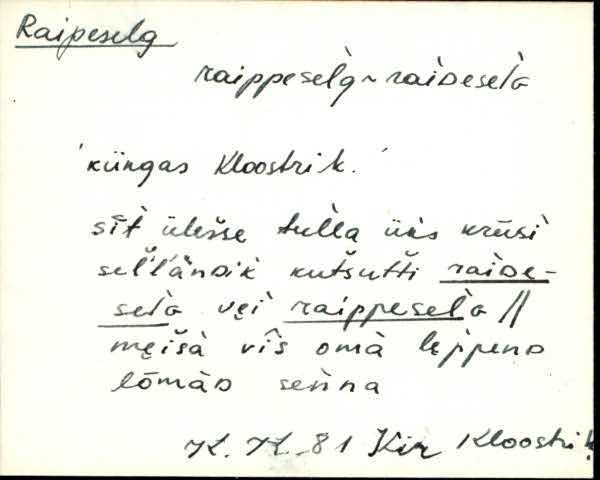 Raipeselg
raippesèlg ~ raiDesèlG
'küngas Kloostri k.'
sīt üleš́še tulla üks krūsi
sel̄l̄änDik kutšutti raiDe-
selG vęi raippesèlG //
męišà vīs omà lęppenD
lōmàD senna
K. K. 81 Kir Kloostri k.